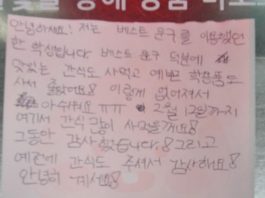 안녕하세요! 저는 베스트 문구를 이용했던
한 학생입니다 베스트 문구 덕분에
맛있는 간식도 사먹고 예쁜 학용품도
사서 좋았어요! 이렇게 없어져서
아쉬워요ㅠㅠ 2월 12일까지
여기서 간식 많이 사먹을게요!
그동안 감사했습니다! 그리고
예전에 간식도 주셔서 감사해요!
안녕히 계세요!